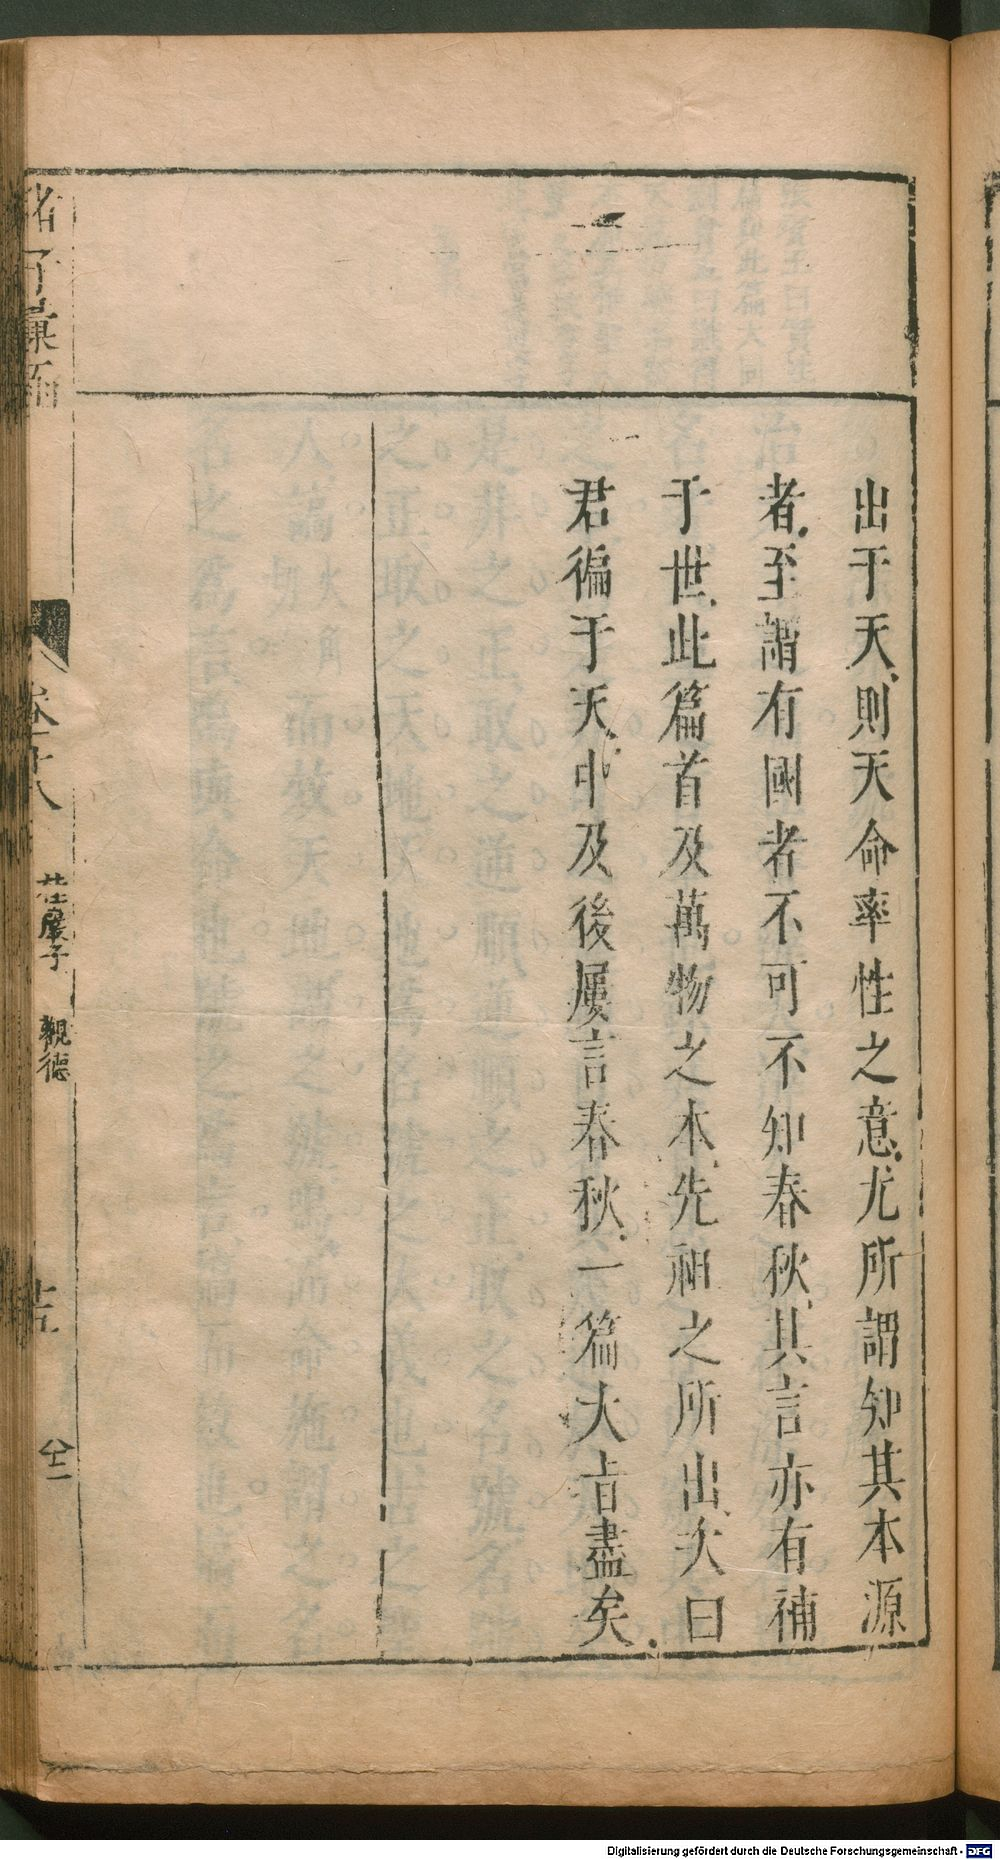 出于天、則天命率性之意、尤所謂知其本源
者、至謂有國者不可不知春秋、其言亦有補
于世、此篇首及萬物之本、先祖之所出、次曰
君徧于天、中及後屢言春秋、一篇大旨盡矣、
諸子彙函
卷十八
桂巖子 觀德
Digitalisierung gefördert durch die Deutsche Forschungsgemeinschaft - DFG